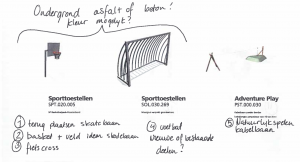 Ondergrond asfalt of beton?
kleur mogelijk?
Sporttoestellen
SPT.020.005
Sporttoestellen
SOL.030.269
Adventure Play
PST.000.030
① terug plaatsen skatebaan
② basket + veld idem skatebaan
③ fietscross
④ voetbal
nieuwe of bestaande
doelen?
⑤ Natuurlijk spelen
kabelbaan?